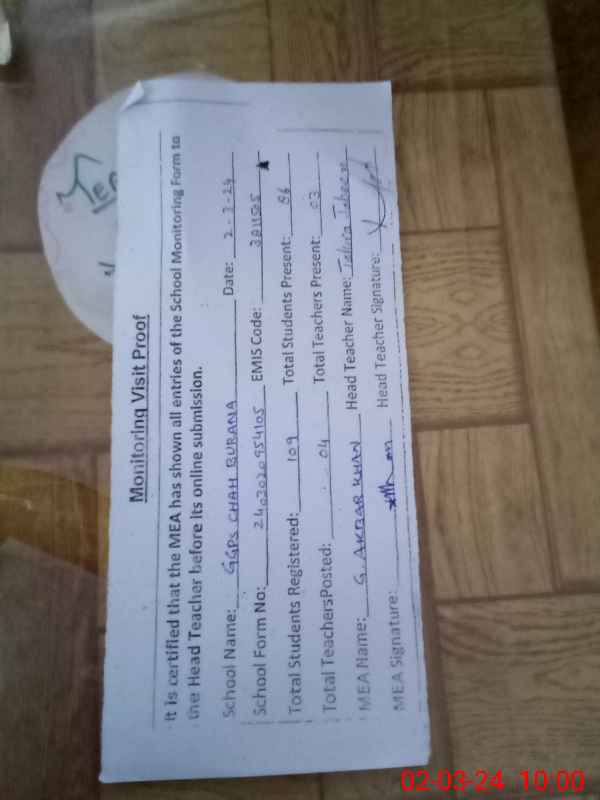 Monitoring Visit Proof
It is certified that the MEA has shown all entries of the School Monitoring Form to
the Head Teacher before its online submission.
School Name: GGPS CHAH BURANA Date: 2-3-24
School Form No: 2402020954105 EMIS Code:
Total Students Registered: 109 Total Students Present: 86
Total TeachersPosted: 04 Total Teachers Present: 03
MEA Name: G. AKBAR KHAN Head Teacher Name: Tahira
MEA Signature: Head Teacher Signature:
02-03-24 10:00